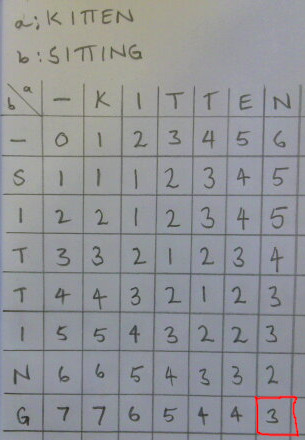 a: KITTEN
b: SITTING
b a - K I T T E N
- 0 1 2 3 4 5 6
S 1 1 1 2 3 4 5
I 2 2 1 2 3 4 5
T 3 3 2 1 2 3 4
T 4 4 3 2 1 2 3
I 5 5 4 3 2 2 3
N 6 6 5 4 3 3 2
G 7 7 6 5 4 4 3